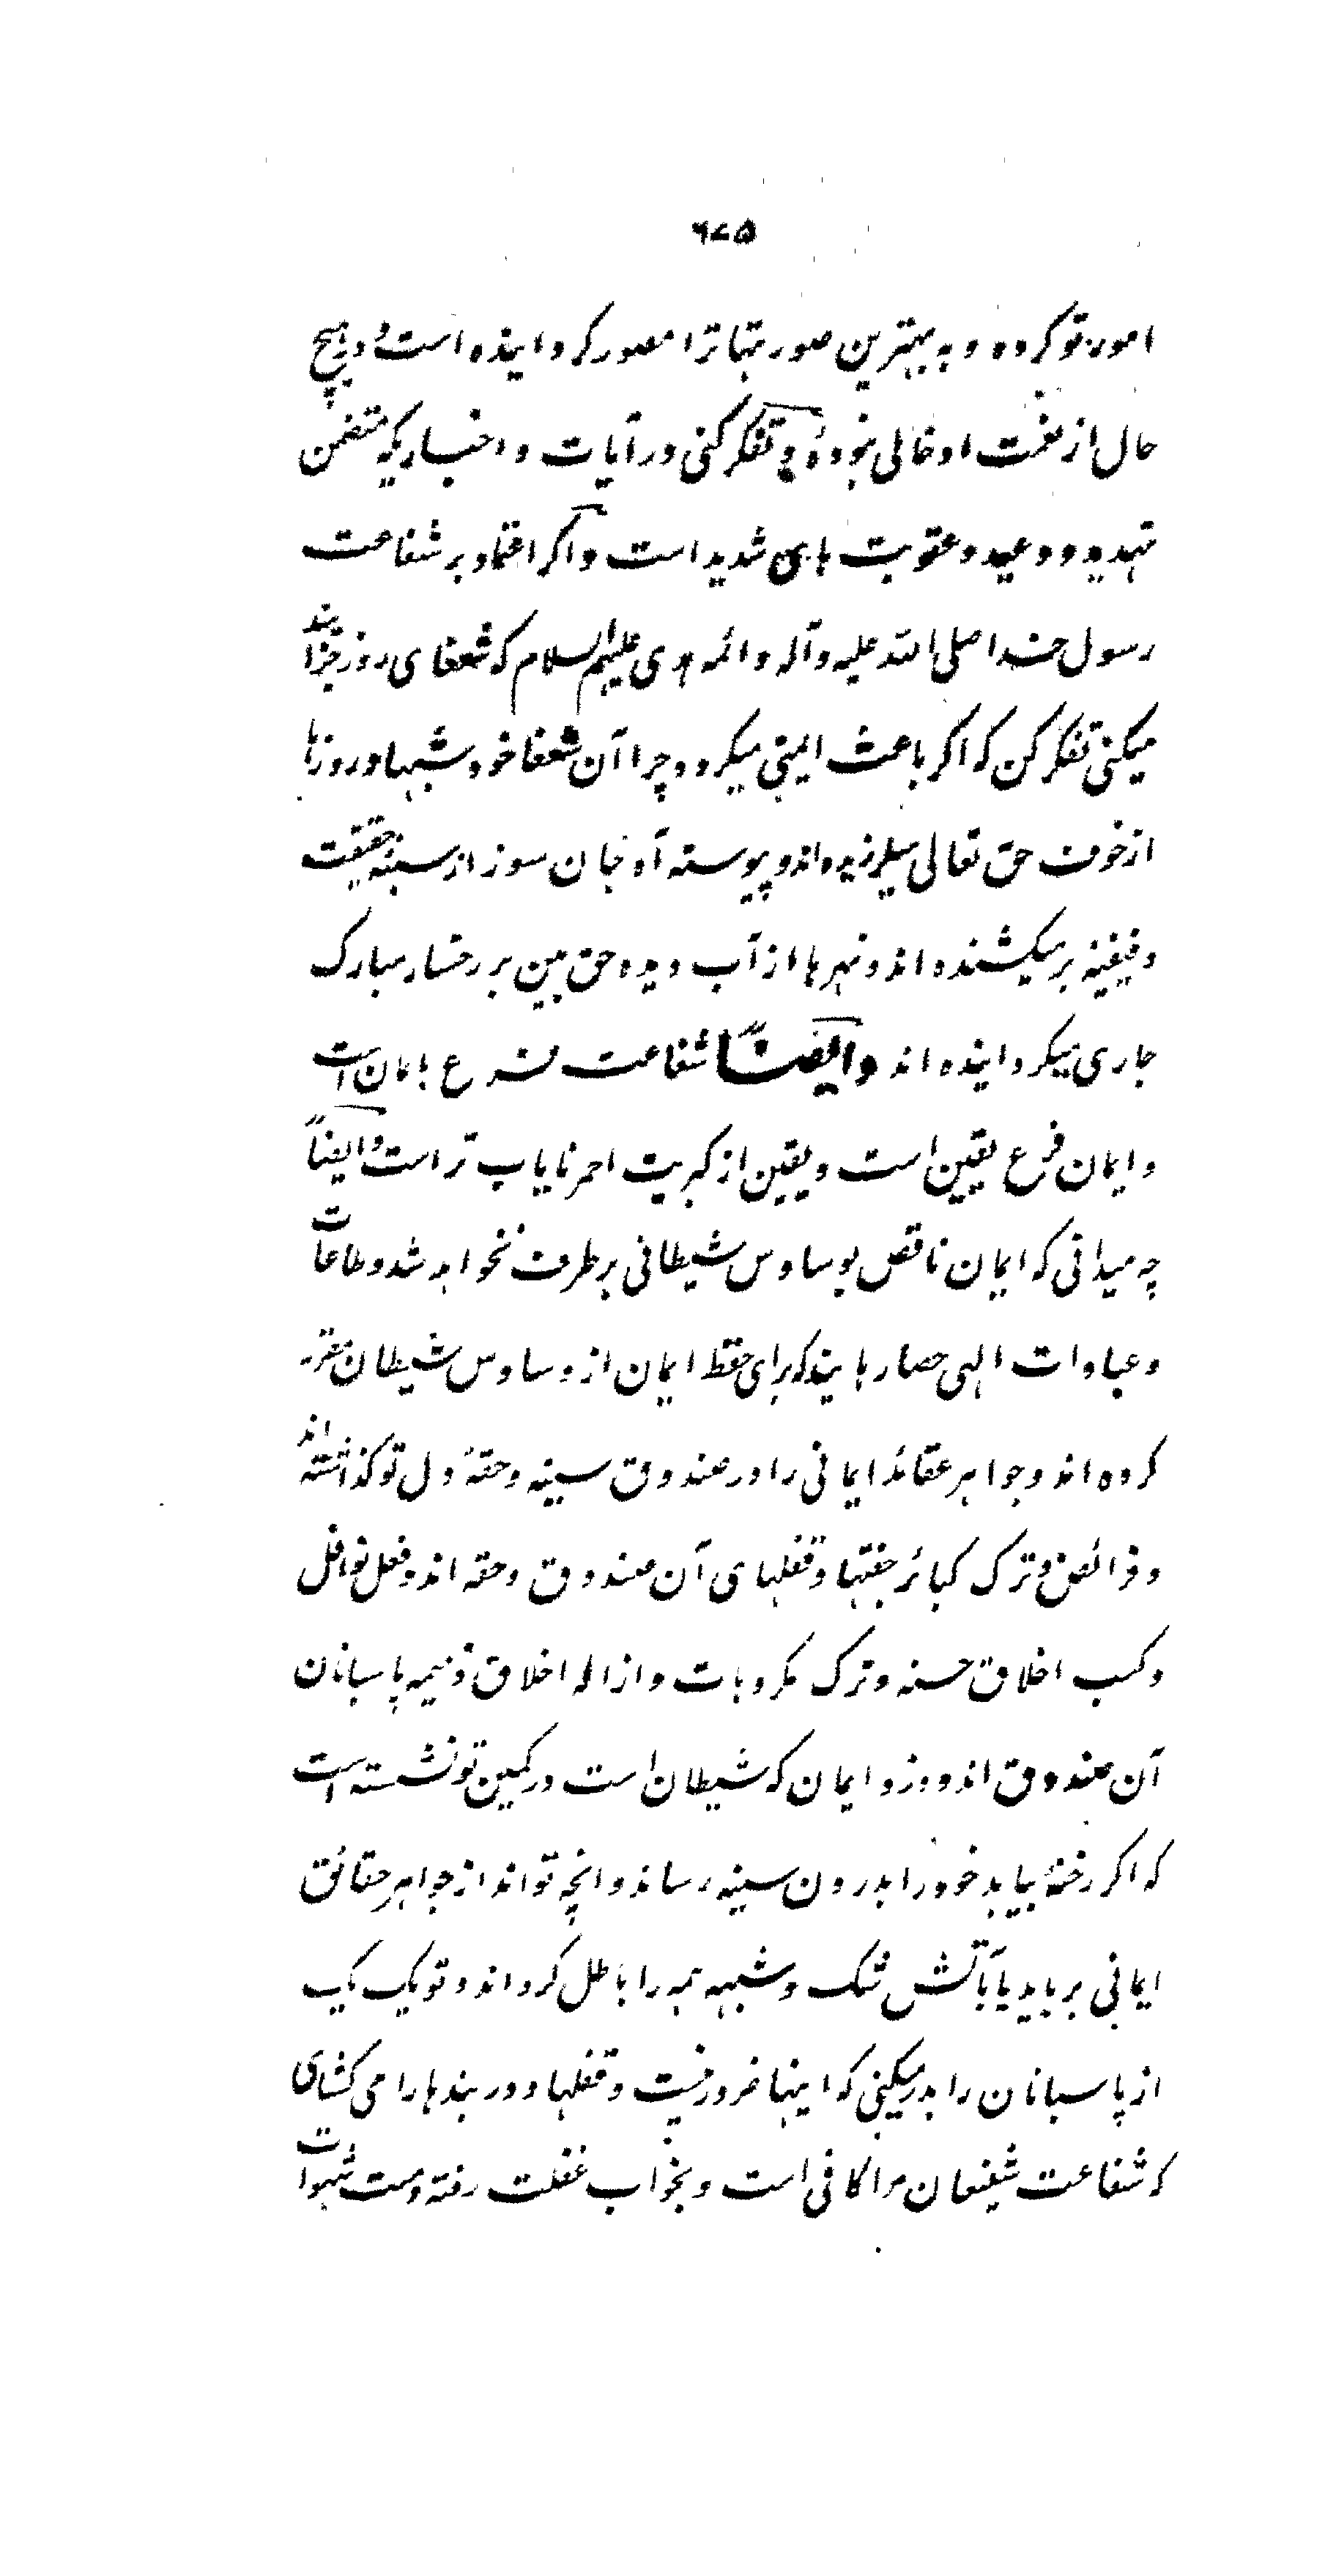 ۶۷۵
امور تو کرده و به بهترین صورتها ترا مصور کردانیده است و در هیچ
حال از نعمت او خالی نبودهٔ و تفکر کنی در آیات و اخباریکه متضمن
تهدید و وعید و عقوبت های شدید است و اکر اعتماد بر شفاعت
رسول خدا صلی الله علیه و آله و ائمه هدی علیهم السلام که شفعای روز جزایند
میکنی تفکر کن که اکر باعث ایمنی میکردد چرا آن شفعا خود شبها و روزها
از خوف حق تعالی میلرزیده اند و پیوسته آه جان سوز از سینه حقیقت
دفینه بر میکشنده اند و نهرها از آب دیده حق بین بر رخسار مبارک
جاری میکردانیده اند وایضاً شفاعت فرع ایمان است
و ایمان فرع یقین است و یقین از کبریت احمر نایاب تر است و ایضاً
چه میدانی که ایمان ناقص بوساوس شیطانی برطرف نخواهد شد و طاعات
و عبادات الهی حصارهایند که برای حفظ ایمان از وساوس شیطان مقرر
کرده اند و جواهر عقائد ایمانی را در صندوق سینه و حقهٔ دل تو کذاشته اند
و فرائض و ترک کبائر جفتها و قفلهای آن صندوق و حقه اند و فعل نوافل
و کسب اخلاق حسنه و ترک مکروهات و ازاله اخلاق ذمیمه پاسبانان
آن صندوق اند و دزد ایمان که شیطان است در کمین تو نشسته است
که اکر رخنهٔ بیابد خود را بدرون سینه رساند و انچه تواند از جواهر حقائق
ایمانی برباید یا بآتش شک و شبهه همه را باطل کرداند و تو یک یک
از پاسبانان را بدر میکنی که اینها ضرور نیست و قفلها و در بندها را می کشای
که شفاعت شفیعان مرا کافی است و بخواب غفلت رفته و مست شهوات